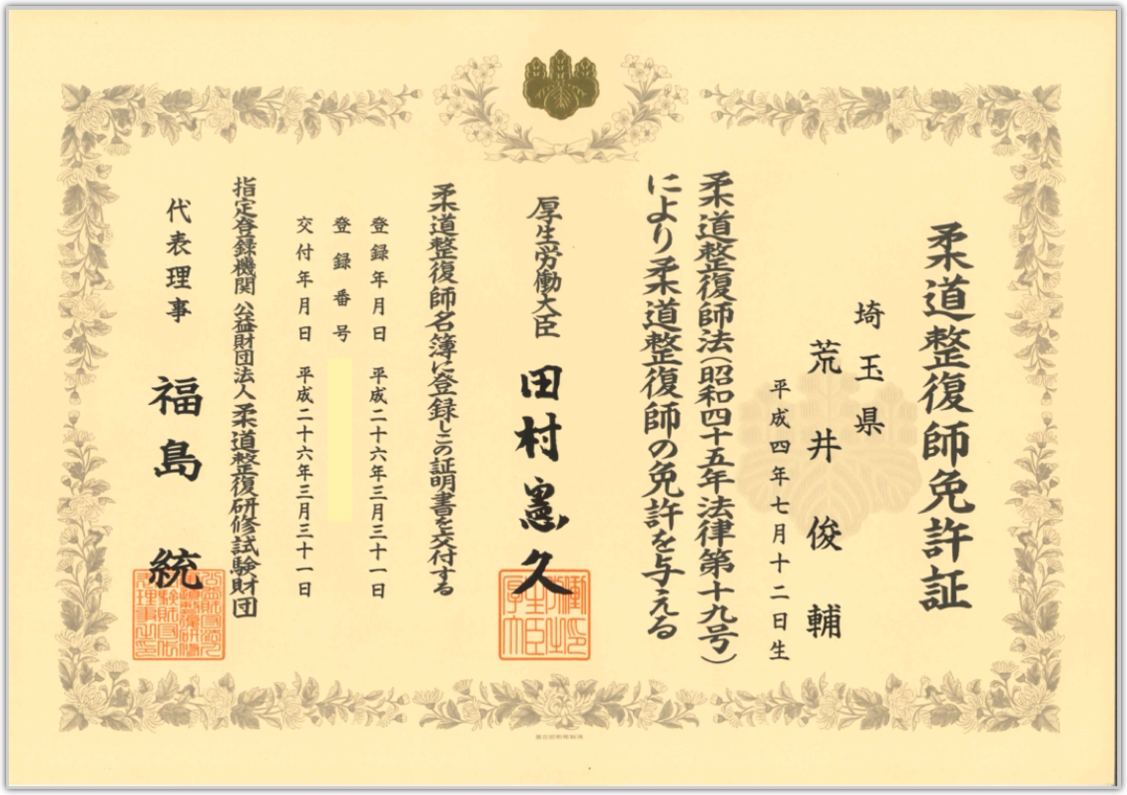 柔道整復師免許証
埼玉県
荒井俊輔
平成四年七月十二日生
柔道整復師法（昭和四十五年法律第十九号）
により柔道整復師の免許を与える
厚生労働大臣 田村憲久
柔道整復師名簿に登録しこの証明書を交付する
登録年月日 平成二十六年三月三十一日
登録番号
交付年月日 平成二十六年三月三十一日
指定登録機関 公益財団法人 柔道整復研修試験財団
代表理事 福島 統